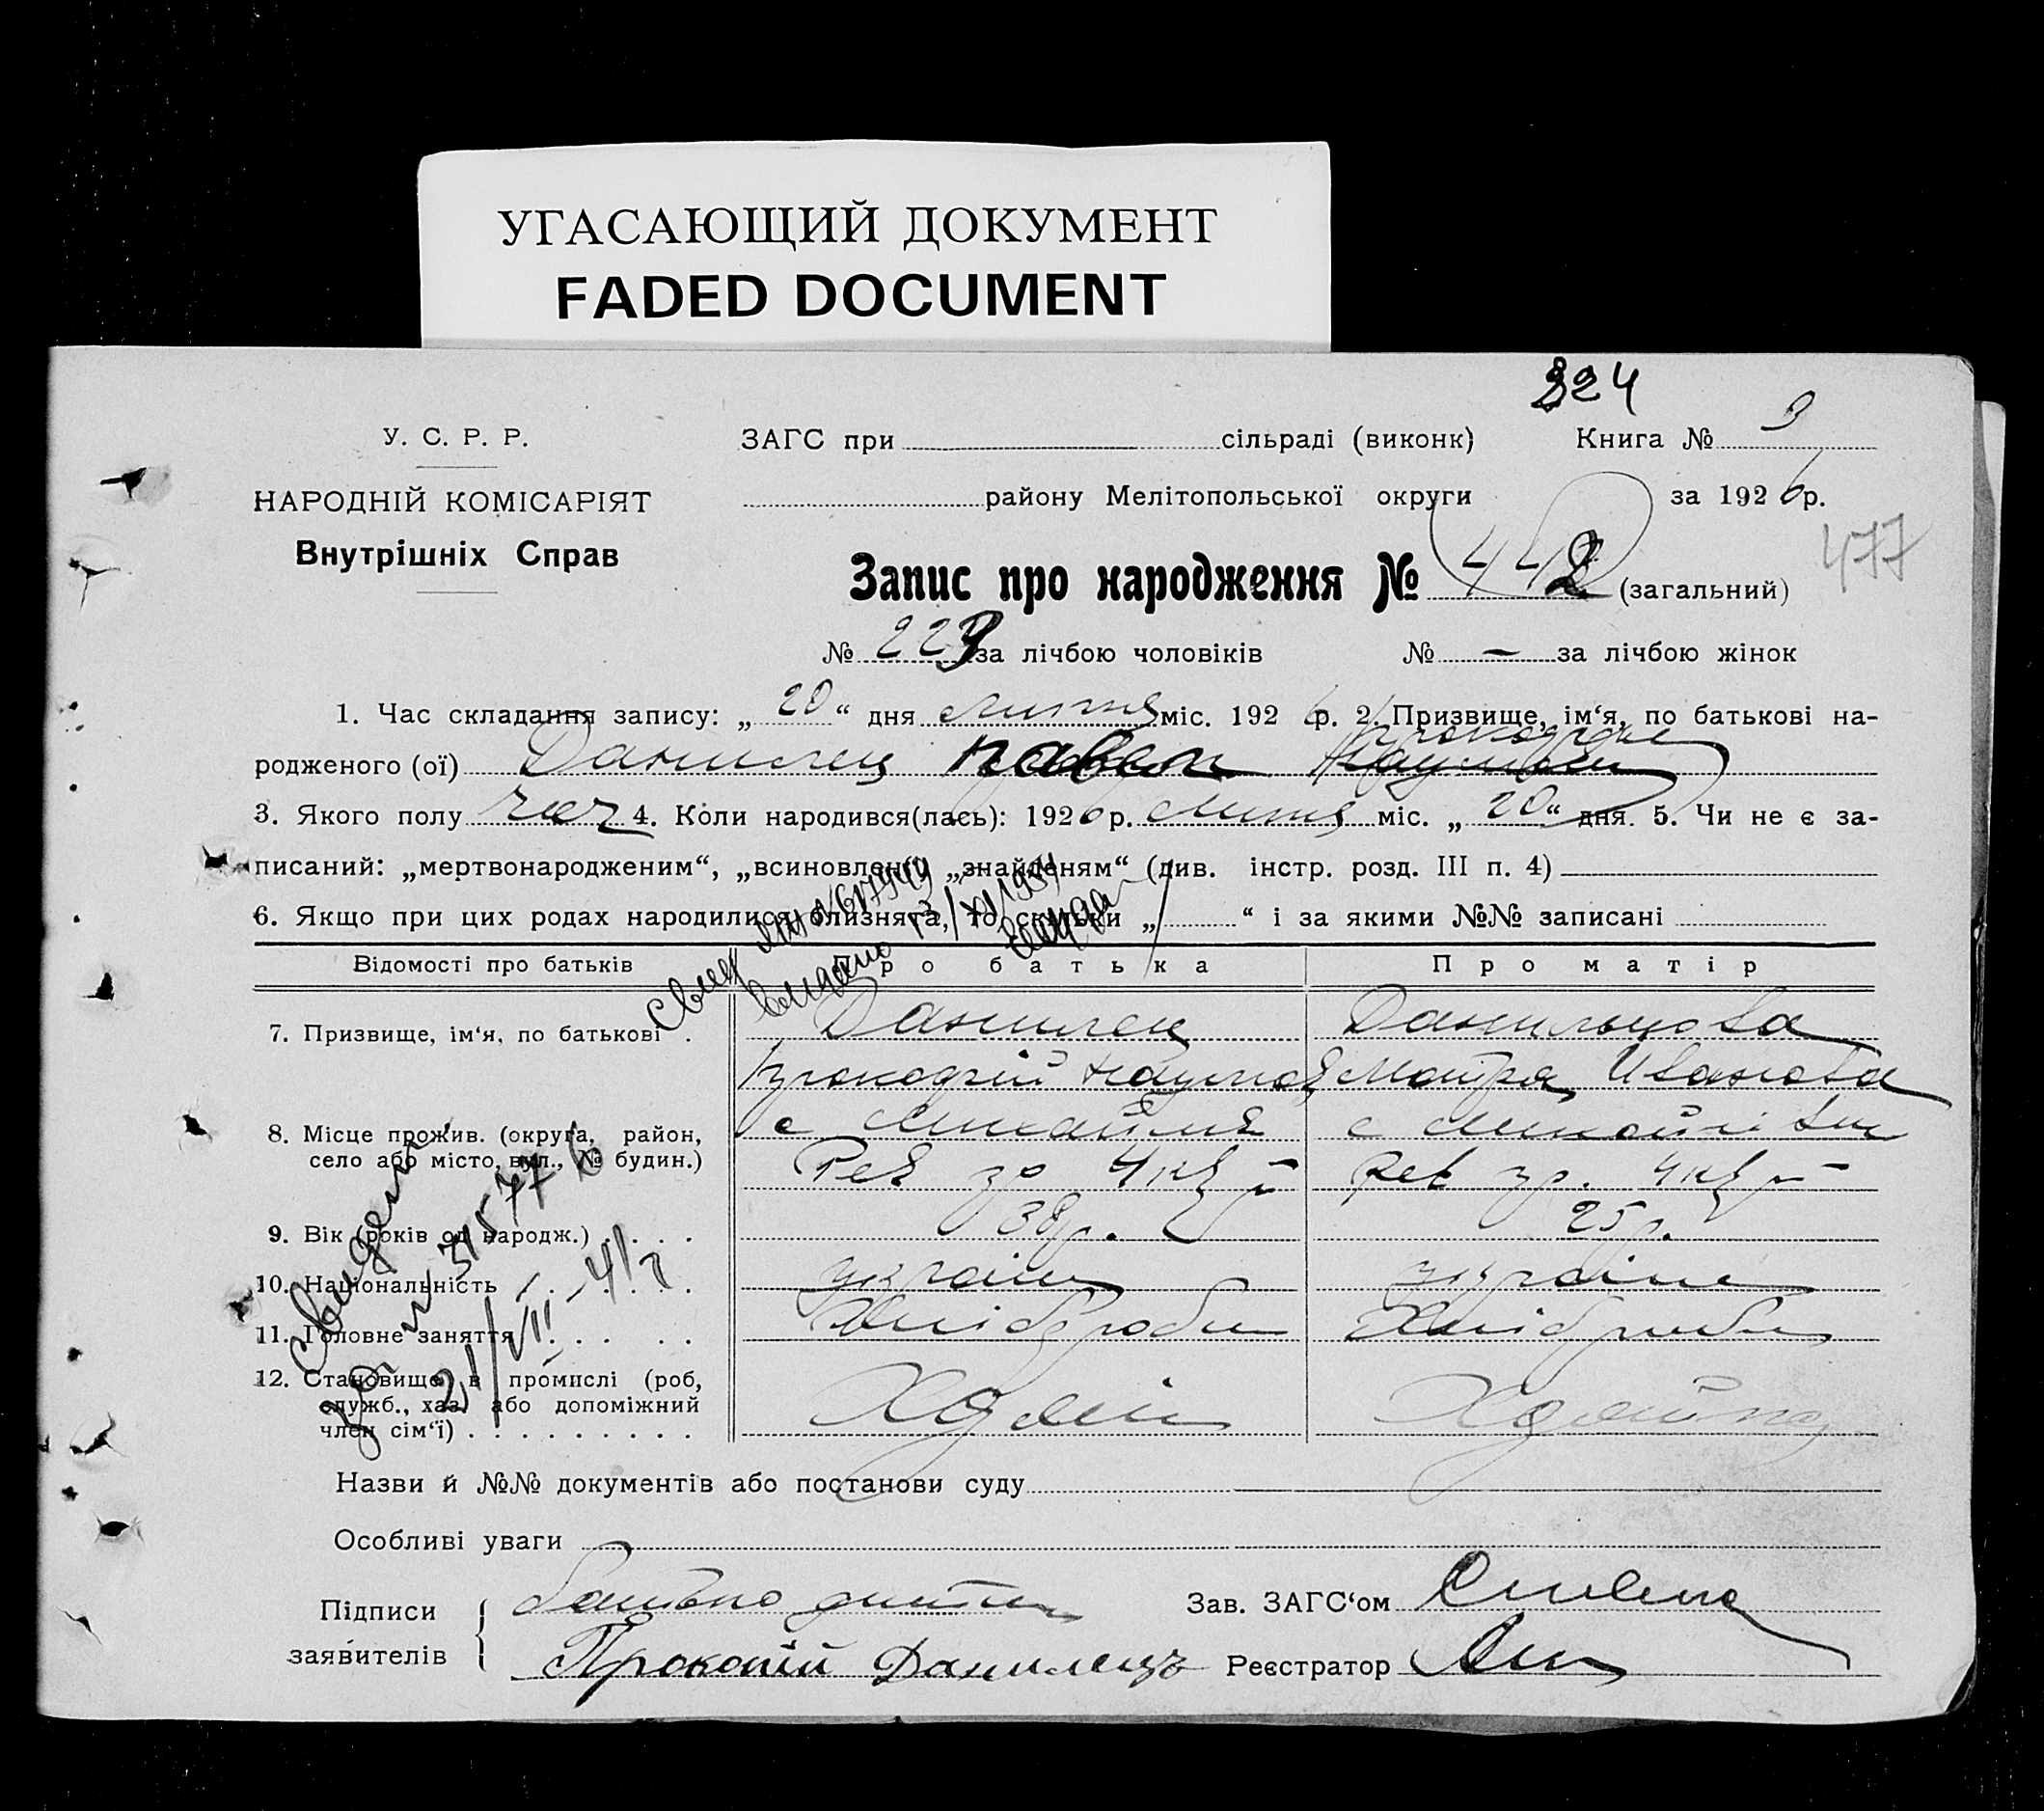 УГАСАЮЩИЙ ДОКУМЕНТ
FADED DOCUMENT
324
У. С. Р. Р.
НАРОДНІЙ КОМІСАРІЯТ
Внутрішніх Справ
ЗАГС при сільраді (виконк) Книга № 3
району Мелітопольської округи за 1926 р.
477
Запис про народження № 442 (загальний)
№ 229 за лічбою чоловіків № — за лічбою жінок
1. Час складання запису: „20“ дня лютня міс. 1926 р. 2. Призвище, ім‘я, по батькові на-
родженого (ої) Данилец Павел
3. Якого полу чол 4. Коли народився(лась): 1926 р. лютня міс. „20“ дня. 5. Чи не є за-
писаний: „мертвонародженим“, „всиновлено „знайденям“ (див. інстр. розд. III п. 4)
6. Якщо при цих родах народилися близнята, то скільки „ “ і за якими №№ записані
Відомості про батьків Про батька Про матір
7. Призвище, ім‘я, по батькові . Данилец Данильцова
Наумов Мотря Иванова
8. Місце прожив. (округа, район, с с
село або місто, вул., № будин.)
9. Вік (років од народж.) . . . . 38 р. 25 р.
10. Національність . . . . . україн україн
11. Головне заняття . . . . . Хлібороб Хлібороб
12. Становище в промислі (роб,
служб., хаз. або допоміжний
член сім‘ї) . . . . . . . . . Хазяїн Хазяйка
Назви й №№ документів або постанови суду
Особливі уваги
Підписи заявителів батько дитини Зав. ЗАГС‘ом
Прокопій Данилецъ Реєстратор